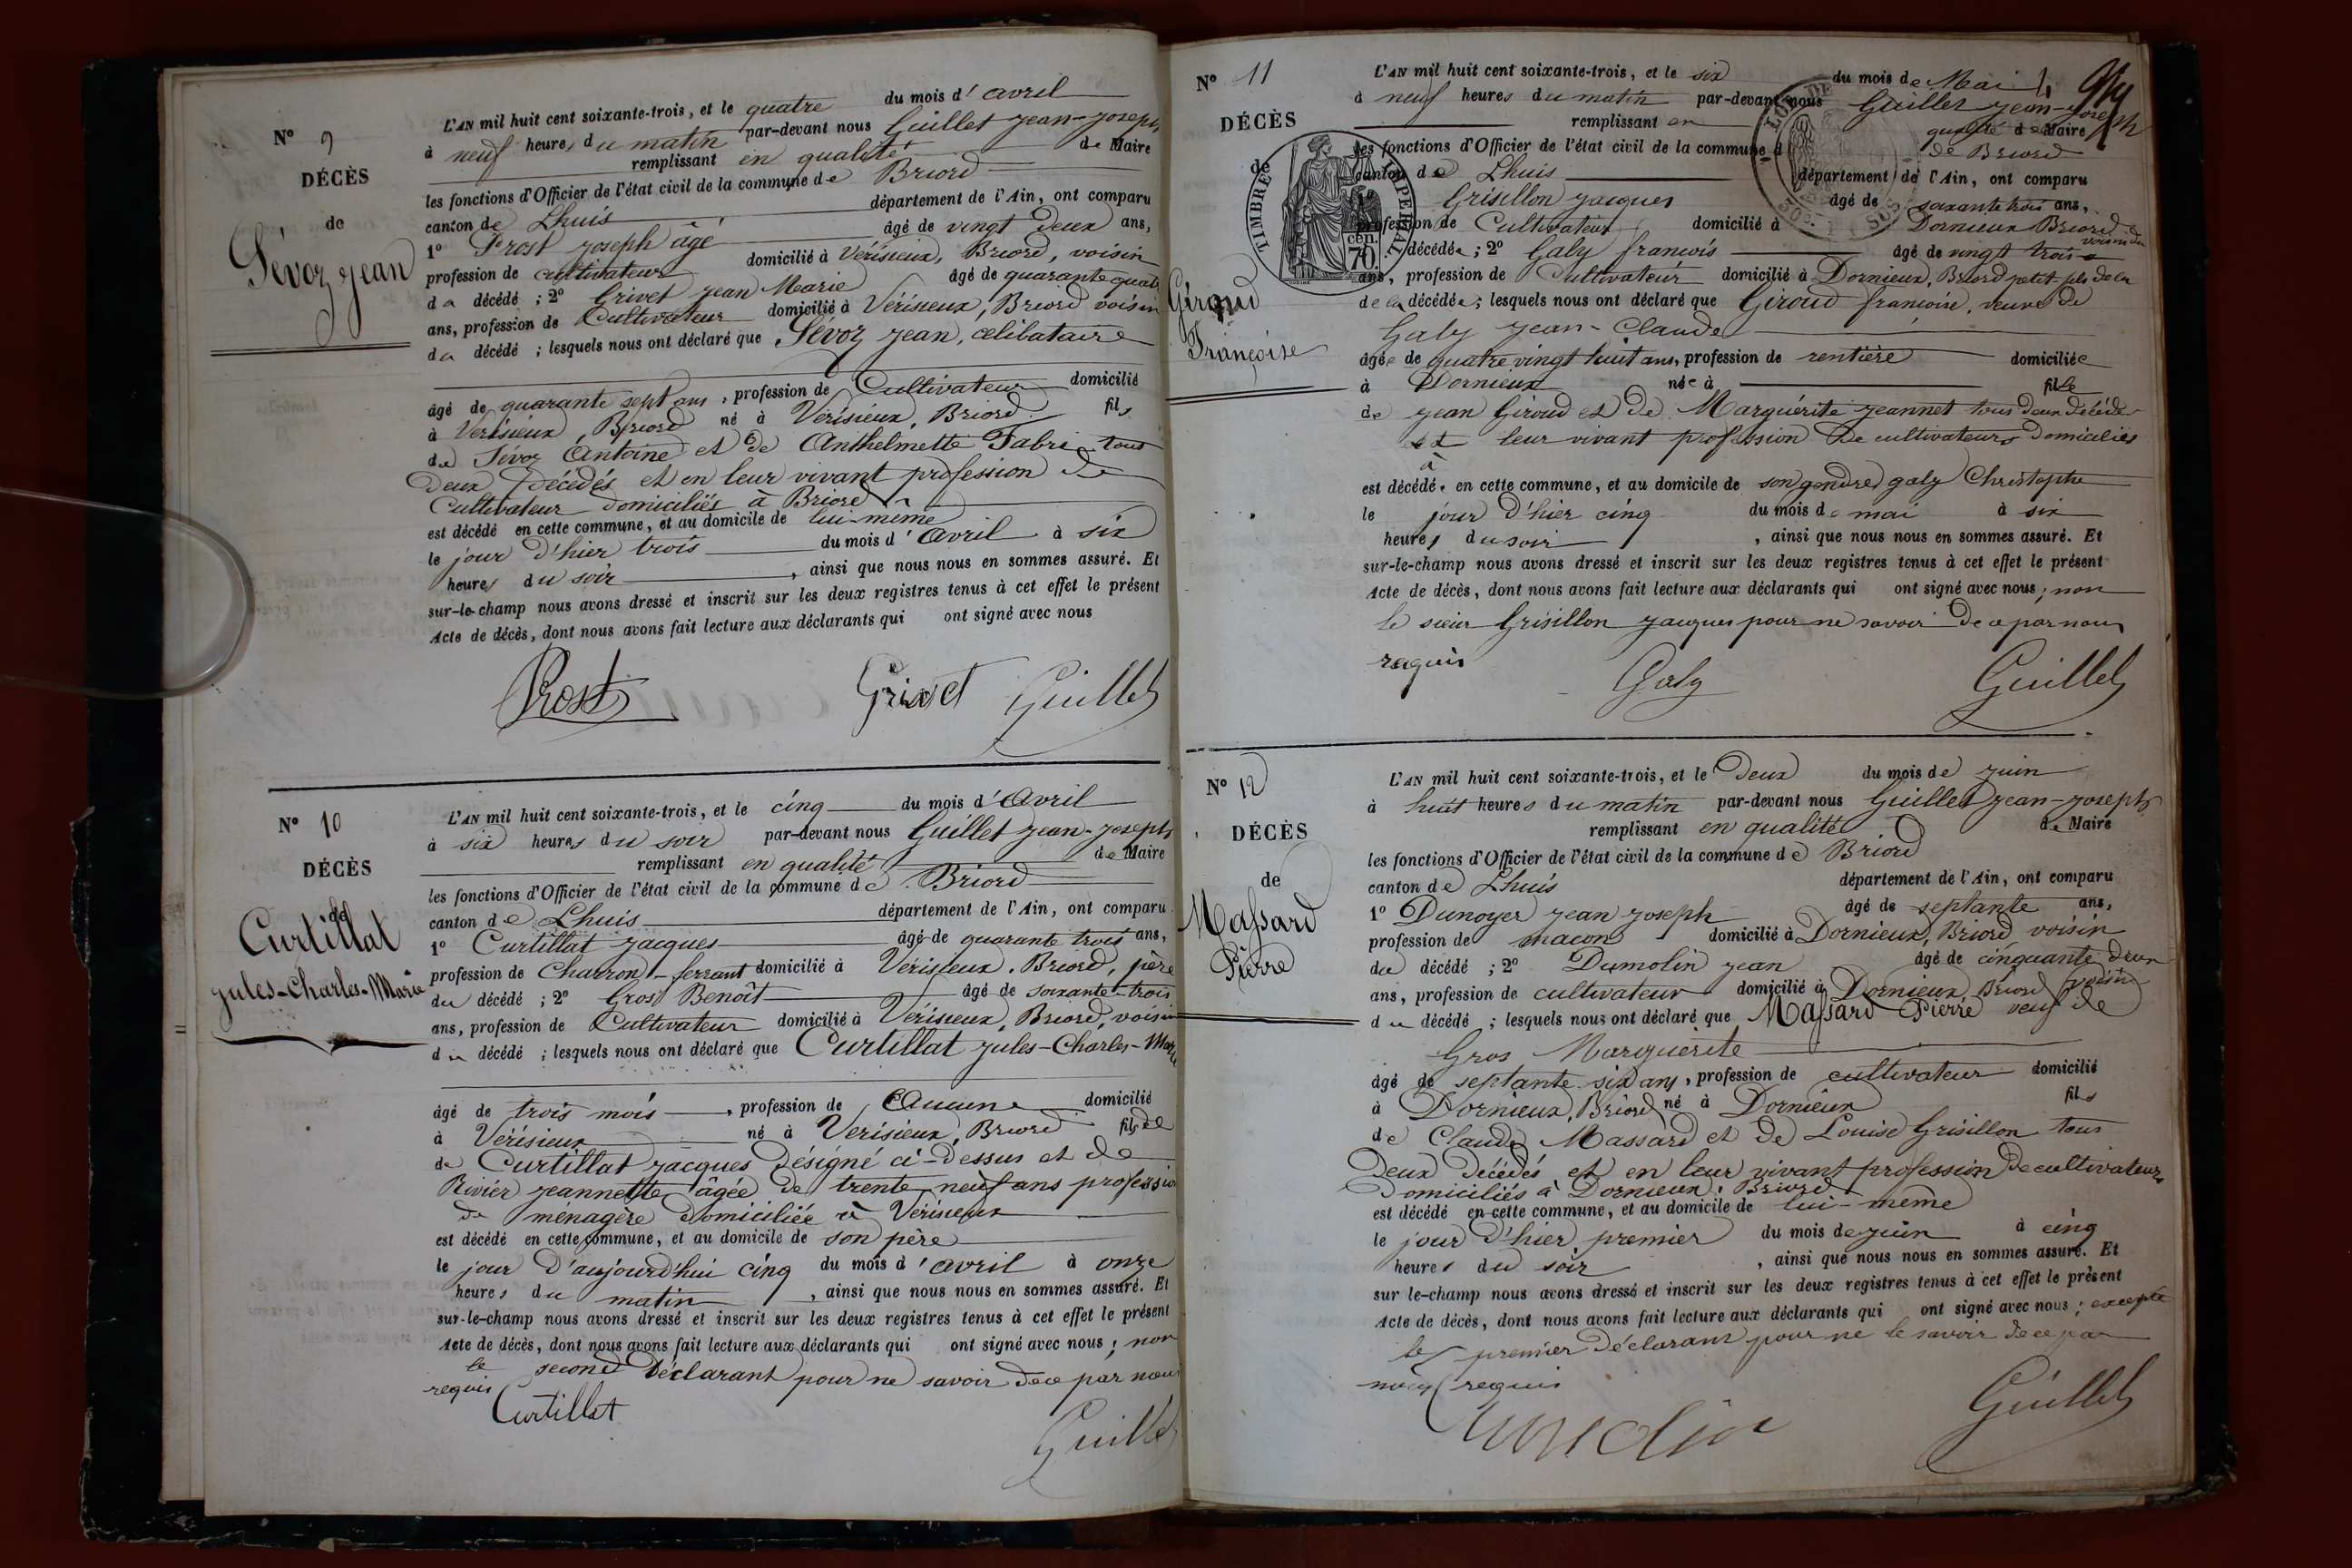 N° 9
DÉCÈS
de
Sévoz Jean
L'AN mil huit cent soixante-trois, et le quatre du mois d'avril
à neuf heures du matin par-devant nous Guillet Jean-Joseph
remplissant en qualité de Maire
les fonctions d'Officier de l'état civil de la commune de Briord
canton de Lhuis département de l'Ain, ont comparu
1° Prost Joseph âgé âgé de vingt deux ans,
profession de cultivateur domicilié à Vérisieux, Briord, voisin
du décédé ; 2° Grivet Jean Marie âgé de quarante quatre
ans, profession de Cultivateur domicilié à Vérisieux, Briord voisin
du décédé ; lesquels nous ont déclaré que Sévoz Jean, célibataire
âgé de quarante sept ans, profession de Cultivateur domicilié
à Verisieux, Briord né à Vérisieux, Briord fils
de Sévoz Antoine et de Anthelmette Fabri tous
deux décédés et en leur vivant profession de
Cultivateur domiciliés à Briord
est décédé en cette commune, et au domicile de lui-même
le jour d'hier trois du mois d'avril à six
heures du soir, ainsi que nous nous en sommes assuré. Et
sur-le-champ nous avons dressé et inscrit sur les deux registres tenus à cet effet le présent
Acte de décès, dont nous avons fait lecture aux déclarants qui ont signé avec nous
Prost Grivet Guillet
N° 10
DÉCÈS
de
Curtillat
Jules-Charles-Marie
L'AN mil huit cent soixante-trois, et le cinq du mois d'Avril
à six heures du soir par-devant nous Guillet Jean-Joseph
remplissant en qualité de Maire
les fonctions d'Officier de l'état civil de la commune de Briord
canton de Lhuis département de l'Ain, ont comparu
1° Curtillat Jacques âgé de quarante trois ans,
profession de Charron-ferrant domicilié à Vérisieux, Briord, père
du décédé ; 2° Gros Benoît âgé de soixante-trois
ans, profession de Cultivateur domicilié à Vérisieux, Briord, voisin
du décédé ; lesquels nous ont déclaré que Curtillat Jules-Charles-Marie
âgé de trois mois, profession de Aucune domicilié
à Vérisieux né à Verisieux, Briord fils de
de Curtillat Jacques désigné ci-dessus et de
Rivier Jeannette âgée de trente neuf ans profession
de ménagère domiciliée à Vérisieux
est décédé en cette commune, et au domicile de son père
le jour d'aujourd'hui cinq du mois d'avril à onze
heures du matin, ainsi que nous nous en sommes assuré. Et
sur-le-champ nous avons dressé et inscrit sur les deux registres tenus à cet effet le présent
Acte de décès, dont nous avons fait lecture aux déclarants qui ont signé avec nous ; non
le second déclarant pour ne savoir de ce par nous
requis
Curtillat
Guillet
N° 11
DÉCÈS
de
Giroud
Françoise
TIMBRE IMPERIAL
cen. 70
L'AN mil huit cent soixante-trois, et le six du mois de Mai
à neuf heures du matin par-devant nous Guillet Jean-Joseph
remplissant en qualité de Maire
les fonctions d'Officier de l'état civil de la commune de Briord
canton de Lhuis département de l'Ain, ont comparu
Grisillon Jacques âgé de soixante trois ans,
profession de Cultivateur domicilié à Dornieux Briord voisin de
décédée ; 2° Galy francois âgé de vingt trois
ans, profession de Cultivateur domicilié à Dornieux, Briord petit-fils de la
de la décédée ; lesquels nous ont déclaré que Giroud francoise, veuve de
Galy Jean-Claude
âgée de quatre vingt huit ans, profession de rentière domiciliée
à Dornieux née à fille
de Jean Giroud et de Marguérite Jeannet tous deux décédés
et leur vivant profession de cultivateurs domiciliés
à
est décédée en cette commune, et au domicile de son gendre galy Christophe
le jour d'hier cinq du mois de mai à six
heures du soir, ainsi que nous nous en sommes assuré. Et
sur-le-champ nous avons dressé et inscrit sur les deux registres tenus à cet effet le présent
Acte de décès, dont nous avons fait lecture aux déclarants qui ont signé avec nous ; non
le sieur Grisillon Jacques pour ne savoir de ce par nous
requis
Galy Guillet
N° 12
DÉCÈS
de
Massard
Pierre
L'AN mil huit cent soixante-trois, et le Deux du mois de Juin
à huit heures du matin par-devant nous Guillet Jean-Joseph
remplissant en qualité de Maire
les fonctions d'Officier de l'état civil de la commune de Briord
canton de Lhuis département de l'Ain, ont comparu
1° Dunoyer Jean Joseph âgé de septante ans,
profession de macon domicilié à Dornieux, Briord voisin
du décédé ; 2° Dumolin Jean âgé de cinquante deux
ans, profession de cultivateur domicilié à Dornieux Briord voisin
du décédé ; lesquels nous ont déclaré que Massard Pierre veuf de
Gros Marguerite
âgé de septante six ans, profession de cultivateur domicilié
à Dornieux, Briord né à Dornieux fils
de Claude Massard et de Louise Grisillon tous
deux décédés et en leur vivant profession de cultivateurs
domiciliés à Dornieux, Briord
est décédé en cette commune, et au domicile de lui-même
le jour d'hier premier du mois de Juin à cinq
heures du soir, ainsi que nous nous en sommes assuré. Et
sur le-champ nous avons dressé et inscrit sur les deux registres tenus à cet effet le présent
Acte de décès, dont nous avons fait lecture aux déclarants qui ont signé avec nous ; excepté
le premier déclarant pour ne le savoir de ce par
nous requis
Dumolin Guillet